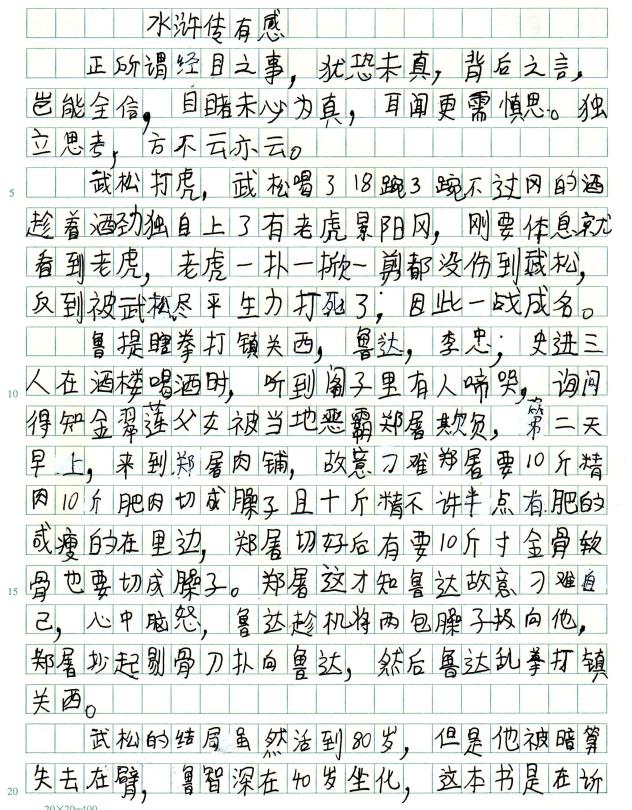 水浒传有感
正所谓经目之事，犹恐未真，背后之言，
岂能全信，目睹未必为真，耳闻更需慎思。独
立思考，方不云亦云。
武松打虎，武松喝了18碗3碗不过冈的酒
5
趁着酒劲独自上了有老虎景阳冈，刚要休息就
看到老虎，老虎一扑一掀一剪都没伤到武松，
反到被武松尽平生力打死了；因此一战成名。
鲁提瞎拳打镇关西，鲁达，李忠；史进三
人在酒楼喝酒时，听到阁子里有人啼哭，询问
10
得知金翠莲父女被当地恶霸郑屠欺负，第二天
早上，来到郑屠肉铺，故意刁难郑屠要10斤精
肉10斤肥肉切成臊子且十斤精不许半点有肥的
或瘦的在里边，郑屠切好后有要10斤寸金骨软
骨也要切成臊子。郑屠这才知鲁达故意刁难自
15
己，心中脑怒，鲁达趁机将两包臊子扱向他，
郑屠抄起剔骨刀扑向鲁达，然后鲁达乱拳打镇
关西。
武松的结局虽然活到80岁，但是他被暗算
失去在臂，鲁智深在40岁坐化，这本书是在诉
20
20×20=400